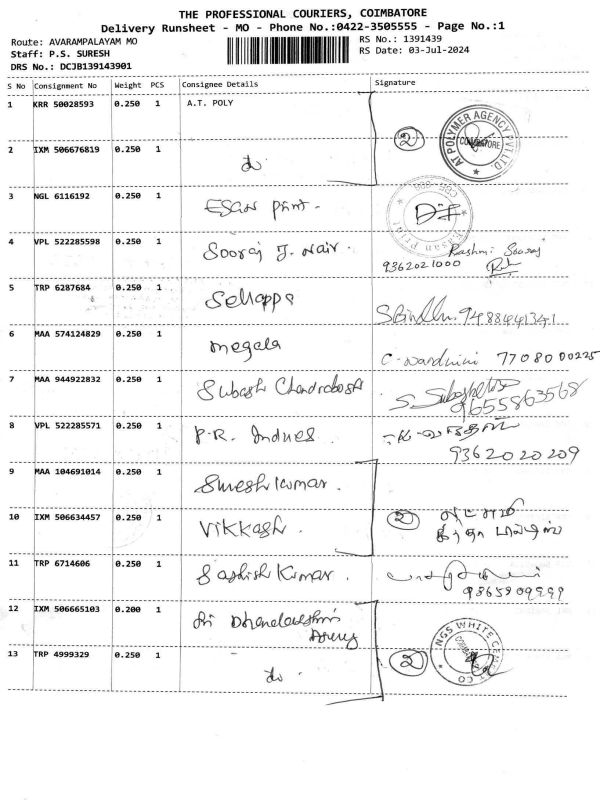 THE PROFESSIONAL COURIERS, COIMBATORE
Delivery Runsheet - MO - Phone No.:0422-3505555 - Page No.:1
Route: AVARAMPALAYAM MO
RS No.: 1391439
Staff: P.S. SURESH
RS Date: 03-Jul-2024
DRS No.: DCJB139143901
S No Consignment No Weight PCS Consignee Details Signature
1 KRR 50028593 0.250 1 A.T. POLY
2
AT POLYMER AGENCY PVT LTD.
COIMBATORE
2 IXM 506676819 0.250 1 do
3 NGL 6116192 0.250 1 Esan print.
4 VPL 522285598 0.250 1 Sooraj J. Nair. Rashmi Sooraj
9362021000
5 TRP 6287684 0.250 1 Sellappa
9488441341
6 MAA 574124829 0.250 1 megala
77080 00225
7 MAA 944922832 0.250 1 Subash Chandrabosh
9655863568
8 VPL 522285571 0.250 1 P.R. Indues
9362020209
9 MAA 104691014 0.250 1 Sureshkumar.
10 IXM 506634457 0.250 1 Vikkash. 2
11 TRP 6714606 0.250 1 Sashish Kumar.
9865909999
12 IXM 506665103 0.200 1 Sri
NGS WHITE CEMENT CO
13 TRP 4999329 0.250 1 do. 2